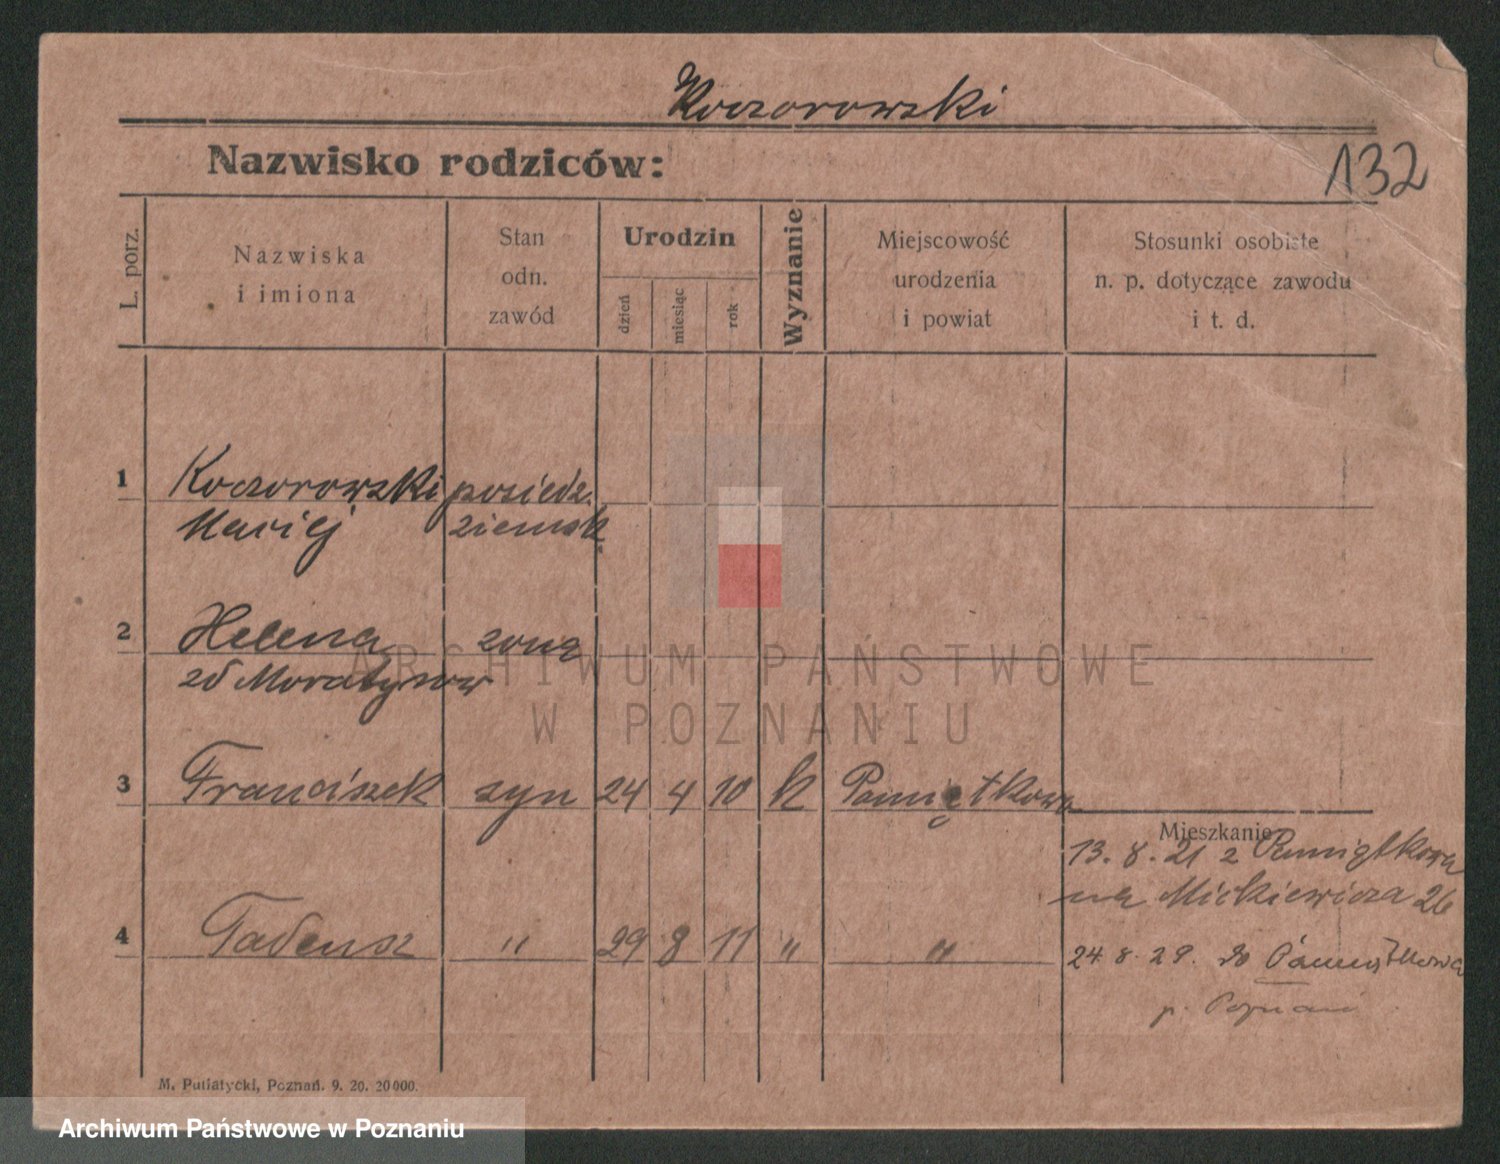 Koczorowski
Nazwisko rodziców:
132
L. porz.
Nazwiska
i imiona
Stan
odn.
zawód
Urodzin
dzień
miesiąc
rok
Wyznanie
Miejscowość
urodzenia
i powiat
Stosunki osobiste
n. p. dotyczące zawodu
i t. d.
1 Koczorowski posiedz.
Maciej ziemsk
2 Helena żona
zd
3 Franciszek syn 24 4 10 k Pamiątkowo
Mieszkanie
13. 8. 21 z Pamiątkowa
na Mickiewicza 26
4 Tadeusz " 29 8 11 " "
24. 8. 29. do Pamiątkowa
p. Poznań
M. Putiatycki, Poznań. 9. 20. 20 000.
ARCHIWUM PAŃSTWOWE
W POZNANIU
Archiwum Państwowe w Poznaniu